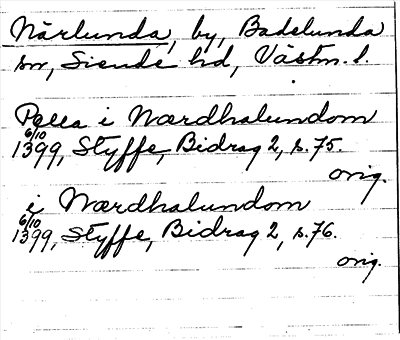 Närlunda, by, Badelunda
sn, Siende hd, Västm. l.
Pella i Nærdhalundom
6/10 1399, Styffe, Bidrag 2, s. 75.
orig.
i Nærdhalundom
6/10 1399, Styffe, Bidrag 2, s. 76.
orig.